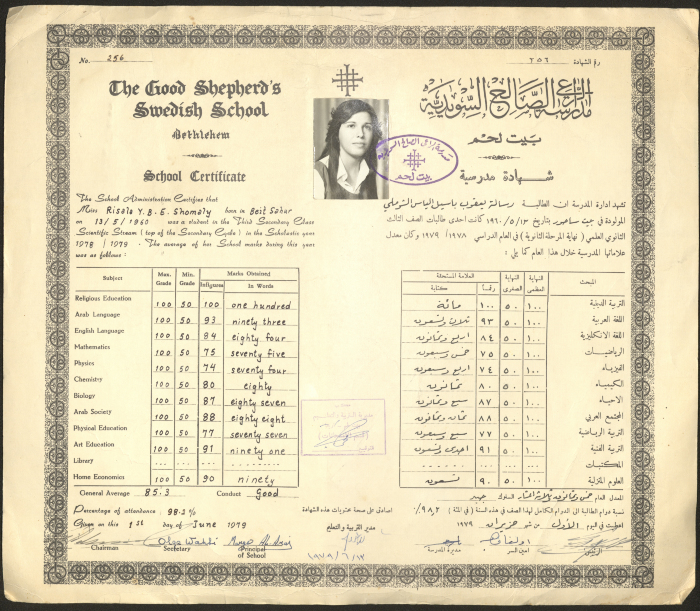 No. 256
The Good Shepherd's
Swedish School
Bethlehem
School Certificate
The School Administration Certifies that
Miss Risala Y. B. E. Shomaly born in Beit Sahur
on 13/5/1960 was a student in the Third Secondary Class
Scientific Stream (top of the Secondary Cycle) in the Scholastic year
1978 / 1979 . The average of her School marks during this year
was as follows :
Subject Max. Grade Min. Grade Marks Obtained
Infigures In Words
Religious Education 100 50 100 one hundred
Arab Language 100 50 93 ninety three
English Language 100 50 84 eighty four
Mathematics 100 50 75 seventy five
Physics 100 50 74 seventy four
Chemistry 100 50 80 eighty
Biology 100 50 87 eighty seven
Arab Society 100 50 88 eighty eight
Physical Education 100 50 77 seventy seven
Art Education 100 50 91 ninety one
Library ... ... ... ........
Home Economics 100 50 90 ninety
General Average 85.3 Conduct Good
Percentage of attendance : 98.2%
Given on this 1st day of June 1979
Chairman Secretary Principal
of School
رقم الشهادة ٢٥٦
مدرسة الراعي الصالح السويدية
بيت لحم
شهادة مدرسية
تشهد ادارة المدرسة ان الطالبة رسالة يعقوب باسيل الياس الشوملي
المولودة في بيت ساحور بتاريخ ١٣/٥/١٩٦٠ كانت احدى طالبات الصف الثالث
الثانوي العلمي (نهاية المرحلة الثانوية) في العام الدراسي ١٩٧٨/ ١٩٧٩ وكان معدل
علاماتها المدرسية خلال هذا العام كما يلي :
المبحث النهاية العظمى النهاية الصغرى العلامة المستحقة
رقماً كتابة
التربية الدينية ١٠٠ ٥٠ ١٠٠ مائة
اللغة العربية ١٠٠ ٥٠ ٩٣ ثلاث وتسعون
اللغة الانكليزية ١٠٠ ٥٠ ٨٤ اربع وثمانون
الرياضيات ١٠٠ ٥٠ ٧٥ خمس وسبعون
الفيزياء ١٠٠ ٥٠ ٧٤ اربع وسبعون
الكيمياء ١٠٠ ٥٠ ٨٠ ثمانون
الاحياء ١٠٠ ٥٠ ٨٧ سبع وثمانون
المجتمع العربي ١٠٠ ٥٠ ٨٨ ثمان وثمانون
التربية الرياضية ١٠٠ ٥٠ ٧٧ سبع وسبعون
التربية الفنية ١٠٠ ٥٠ ٩١ احدى وتسعون
المكتبات
العلوم المنزلية ١٠٠ ٥٠ ٩٠ تسعون
المعدل العام خمس وثمانون وثلاثة اعشار السلوك جيد
نسبة دوام الطالبة الى الدوام الكامل لهذا الصف في هذه السنة (في المئة) ٩٨,٢٪
اعطيت في اليوم الاول من شهر حزيران ١٩٧٩
الرئيس امين السر مديرة المدرسة
اصادق على صحة محتويات هذه الشهادة
مدير التربية والتعليم
١٩٧٩/٦/١٢